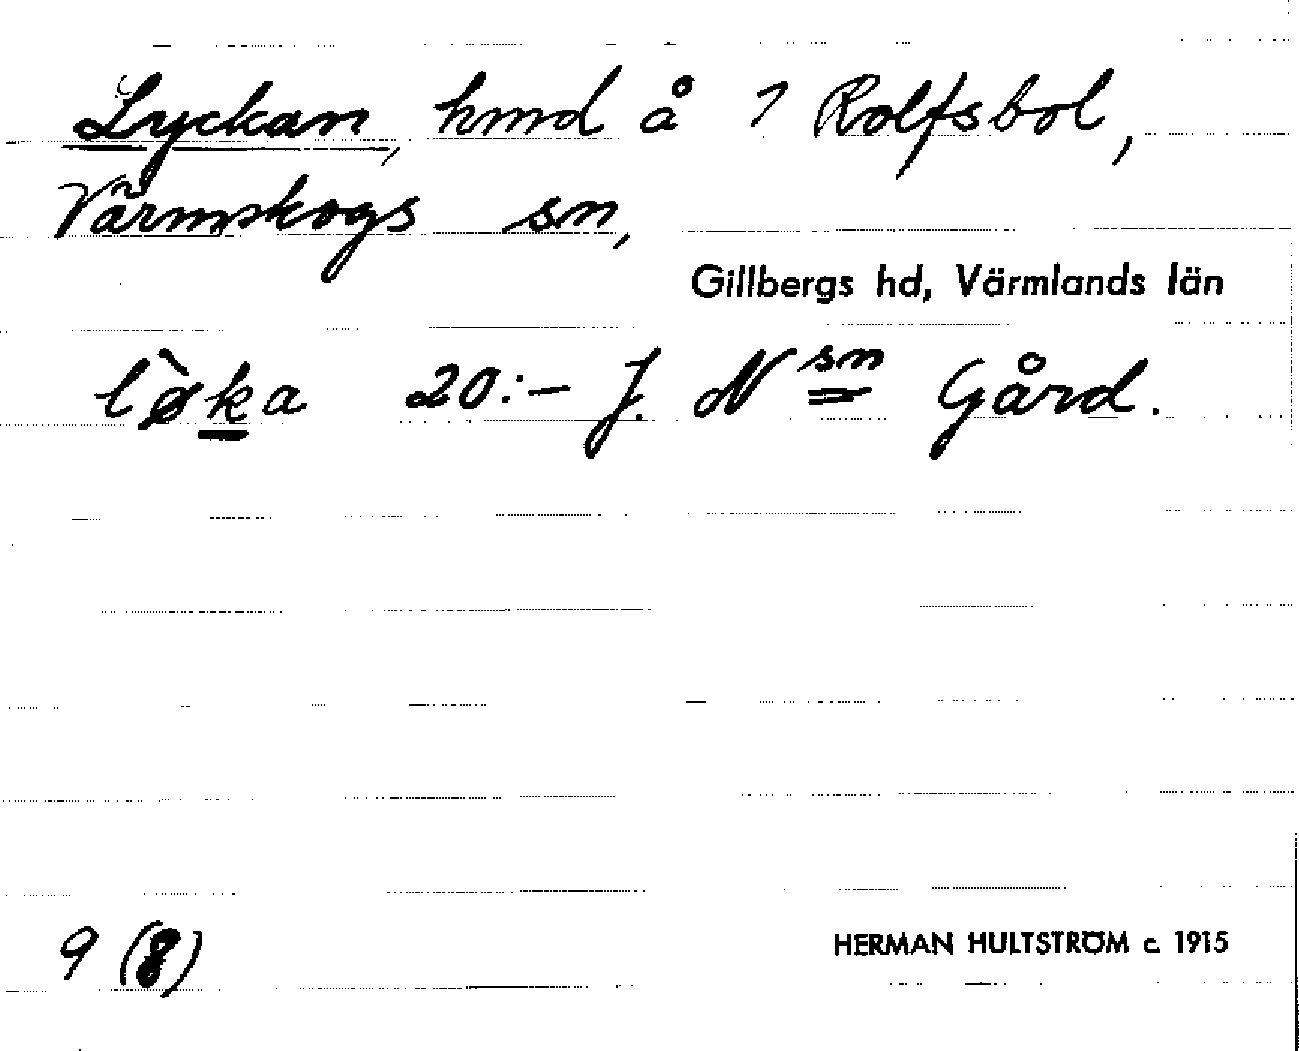 Lyckan, hmd å 1 Rolfsbol,
Värmskogs sn,
Gillbergs hd, Värmlands län
lø̀ka 20:- J. N sn Gård.
9 (8)
HERMAN HULTSTRÖM c. 1915